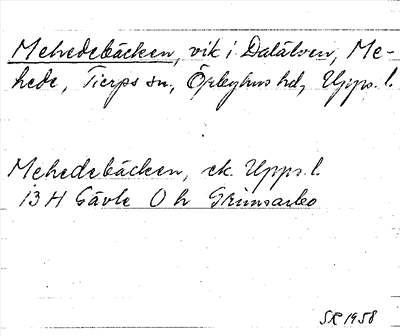 Mehedebäcken, vik i Dalälven, Me-
hede, Tierps sn, Örbyhus hd, Upps. l.
Mehedebäcken, ek. Upps. l.
13 H Gävle 0 h Grimsarbo
SR 1958